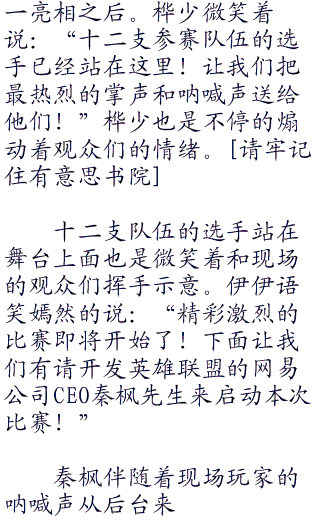 一亮相之后。桦少微笑着
说：“十二支参赛队伍的选
手已经站在这里！让我们把
最热烈的掌声和呐喊声送给
他们！”桦少也是不停的煽
动着观众们的情绪。[请牢记
住有意思书院]
十二支队伍的选手站在
舞台上面也是微笑着和现场
的观众们挥手示意。伊伊语
笑嫣然的说：“精彩激烈的
比赛即将开始了！下面让我
们有请开发英雄联盟的网易
公司CEO秦枫先生来启动本次
比赛！”
秦枫伴随着现场玩家的
呐喊声从后台来